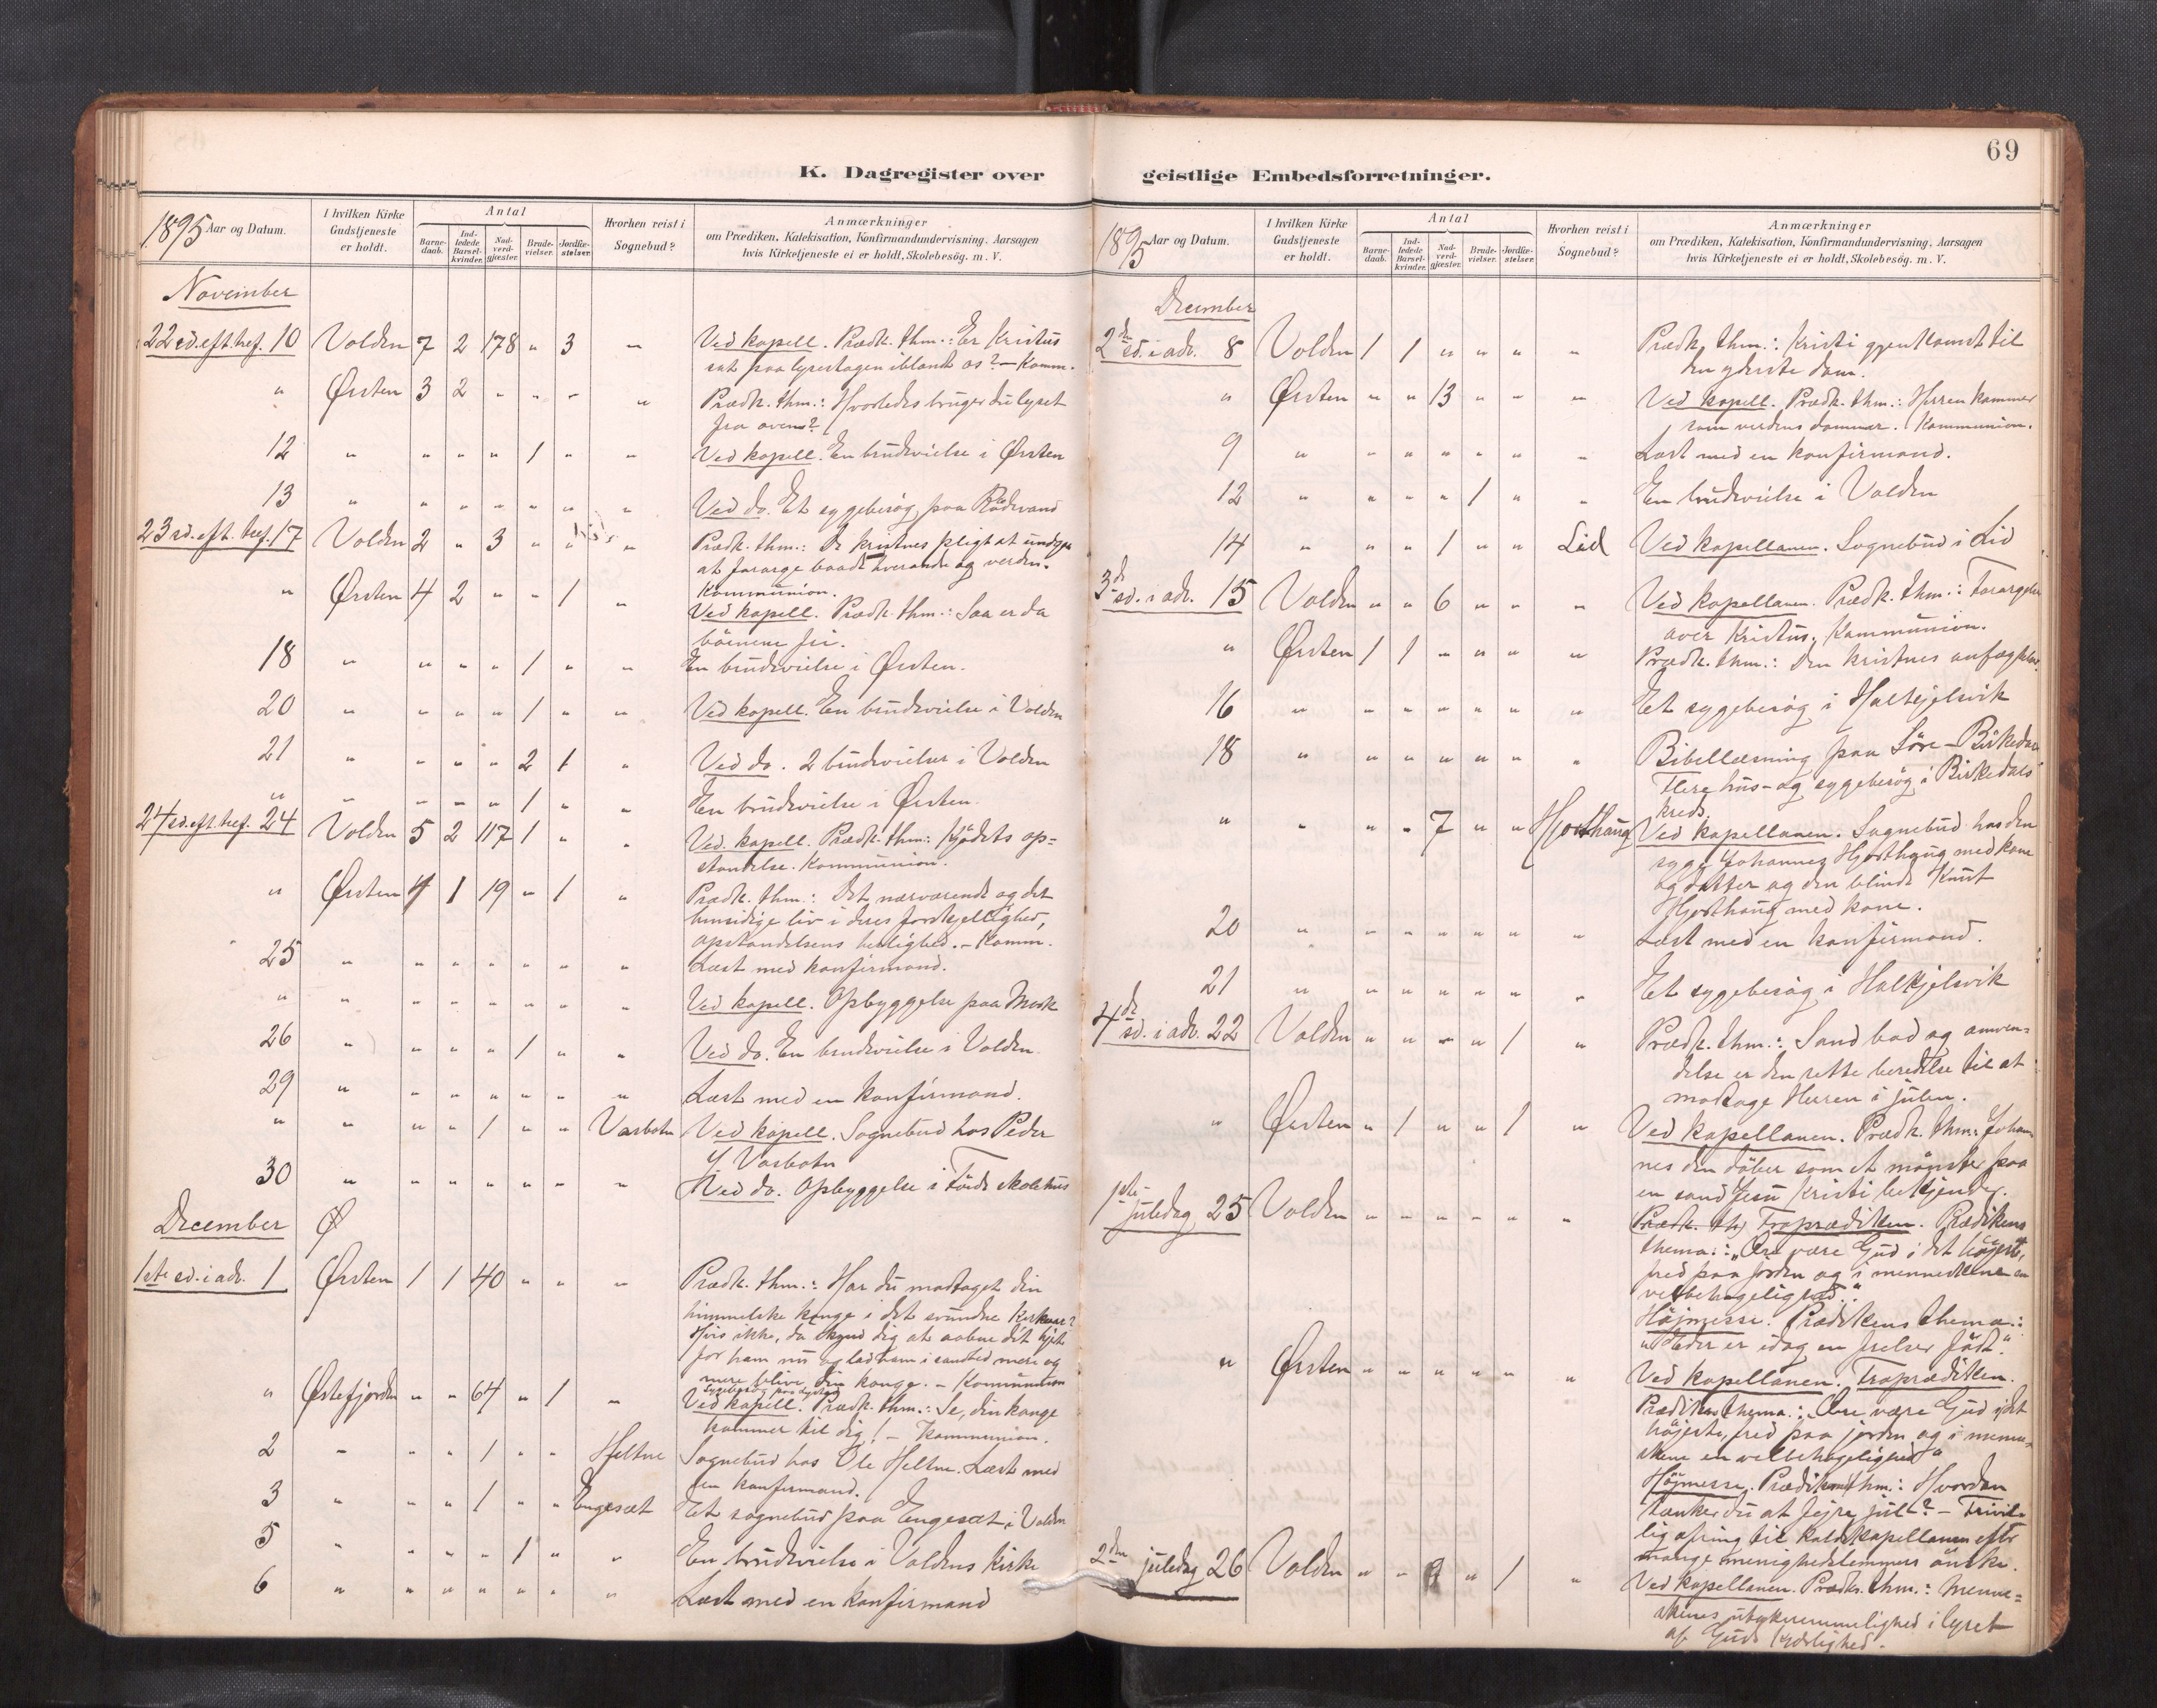 K. Dagregister over
1895 Aar og Datum. I hvilken Kirke Gudstjeneste er holdt. Antal Barnedaab. Indledede Barselkvinder. Nadverdgjæster. Brudevielser. Jordfæstelser. Hvorhen reist i Sognebud? Anmærkninger om Prædiken, Katekisation, Konfirmandundervisning. Aarsagen hvis Kirketjeneste ei er holdt, Skolebesög. m. V.
November
22 sd. eft. tref. 10 Volden 7 2 178 " 3 " Ved kapell. Prædk. thm.: Er Kristus
sat paa lysestagen iblandt os? – Komm.
" Ørsten 3 2 " " " " Prædk. thm.: Hvorledes bruger du lyset
fra oven?
12 " " " " 1 " " Ved kapell. En brudevielse i Ørsten
13 " " " " " " " Ved do. Et sygebesög paa Rödvand
23 sd. eft. tref. 17 Volden 2 " 3 " " " Prædk. thm.: De kristnes pligt at undgaa
at forarge baade hverandre og verden.
Kommunion.
" Ørsten 4 2 " " 1 " Ved kapell. Prædk. thm.: Saa er da
börnene fri.
18 " " " " 1 " " En brudevielse i Ørsten.
20 " " " " 1 " " Ved kapell. En brudevielse i Volden
21 " " " " 2 1 " Ved do. 2 brudevielser i Volden
" " " " " 1 " " En brudevielse i Ørsten.
24 sd. eft. tref. 24 Volden 5 2 117 1 " " Ved kapell. Prædk. thm: Kjödets op=
standelse. Kommunion.
" Ørsten 4 1 19 " 1 " Prædk. thm.: Det nærværende og det
hinsidige liv i deres forskjellighed,
opstandelsens herlighed. – Komm.
25 " " " " " " " Læst med konfirmand.
" " " " " " " " Ved kapell. Opbyggelse paa Mork
26 " " " " 1 " " Ved do. En brudevielse i Volden.
29 " " " " " " " Læst med en konfirmand.
" " " " 1 " " Vasbotn Ved kapell. Sognebud hos Peder
J. Vasbotn
30 " " " " " " " Ved do. Opbyggelse i Förde skolehus
December Ø
1ste sd. i adv. 1 Ørsten 1 1 40 " " " Prædk. thm.: Har du modtaget din
himmelske konge i det svundne kirkeaar?
Hvis ikke, da skynd dig at aabne dit hjerte
for ham nu og lad ham i sandhed mere og
mere blive din konge. – Kommunion
" Østefjorden " " 64 " 1 " Ved kapell. Prædk. thm.: Se, din konge
kommer til dig! – Kommunion.
2 " " " 1 " " Heltne Sognebud hos Ole Heltne. Læst med
en konfirmand.
3 " " " 1 " " Engesæt Et sognebud paa Engesæt i Volden
5 " " " " 1 " " En brudevielse i Voldens kirke
6 " " " " " " " Læst med en konfirmand
69
geistlige Embedsforretninger.
1895 Aar og Datum. I hvilken Kirke Gudstjeneste er holdt. Antal Barnedaab. Indledede Barselkvinder. Nadverdgjæster. Brudevielser. Jordfæstelser. Hvorhen reist i Sognebud? Anmærkninger om Prædiken, Katekisation, Konfirmandundervisning. Aarsagen hvis Kirketjeneste ei er holdt, Skolebesög. m. V.
December
2den sd. i adv. 8 Volden 1 1 " " " " Prædk. thm.: Kristi gjenkomst til
den yderste dom.
" Ørsten " " 13 " " " Ved kapell. Prædk. thm.: Herren kommer
som verdens dommer. Kommunion.
9 " " " " " " " Læst med en konfirmand.
12 " " " " 1 " " En brudevielse i Volden
14 " " " 1 " " Lid Ved kapellanen. Sognebud i Lid
3de sd. i adv. 15 Volden " " 6 " " " Ved kapellanen. Prædk. thm.: Forargelse
over Kristus. Kommunion.
" Ørsten 1 1 " " " " Prædk. thm.: Den kristnes anfægtelse.
16 " " " " " " " Et sygebesög i Halkjelsvik
18 " " " " " " " Bibellæsning paa Søre-Birkedal
Flere hus- og sygebesög i Birkedals
kreds.
" " " " 7 " " Hjorthaug Ved kapellanen. Sognebud hos den
syge Johannes Hjorthaug med kone
og datter og den blinde Knut
Hjorthaug med kone.
20 " " " " " " " Læst med en konfirmand.
21 " " " " " " " Et sygebesög i Halkjelsvik
4de sd. i adv. 22 Volden " " " " 1 " Prædk. thm.: Sand bod og omven=
delse er den rette beredelse til at
modtage Herren i julen.
" Ørsten " 1 " " 1 " Ved kapellanen. Prædk. thm: Johan
nes den döber som et mönster paa
en sand Jesu Kristi bekjender.
1ste juledag 25 Volden " " " " " " Prædk. th. Froprædiken. Prædikens
thema: "Ære være Gud i det höjeste,
fred paa jorden og i menneskene en
velbehagelighed".
Höjmesse. Prædikens thema:
"Eder er idag en frelser födt".
" Ørsten " " " " " " Ved kapellanen. Froprædiken.
Prædikens thema: "Ære være Gud i det
höjeste, fred paa jorden og i menne-
skene en velbehagelighed"
Höjmesse. Prædikens thm: Hvordan
tænker du at fejre jul? – Frivil-
lig ofring til kaldskapellanen efter
mange menighedslemmers önske.
2den juledag 26 Volden " " 9 " 1 " Ved kapellanen. Prædk. thm.: Menne=
skenes utaknemmelighed i lyset
af Guds kjærlighed.